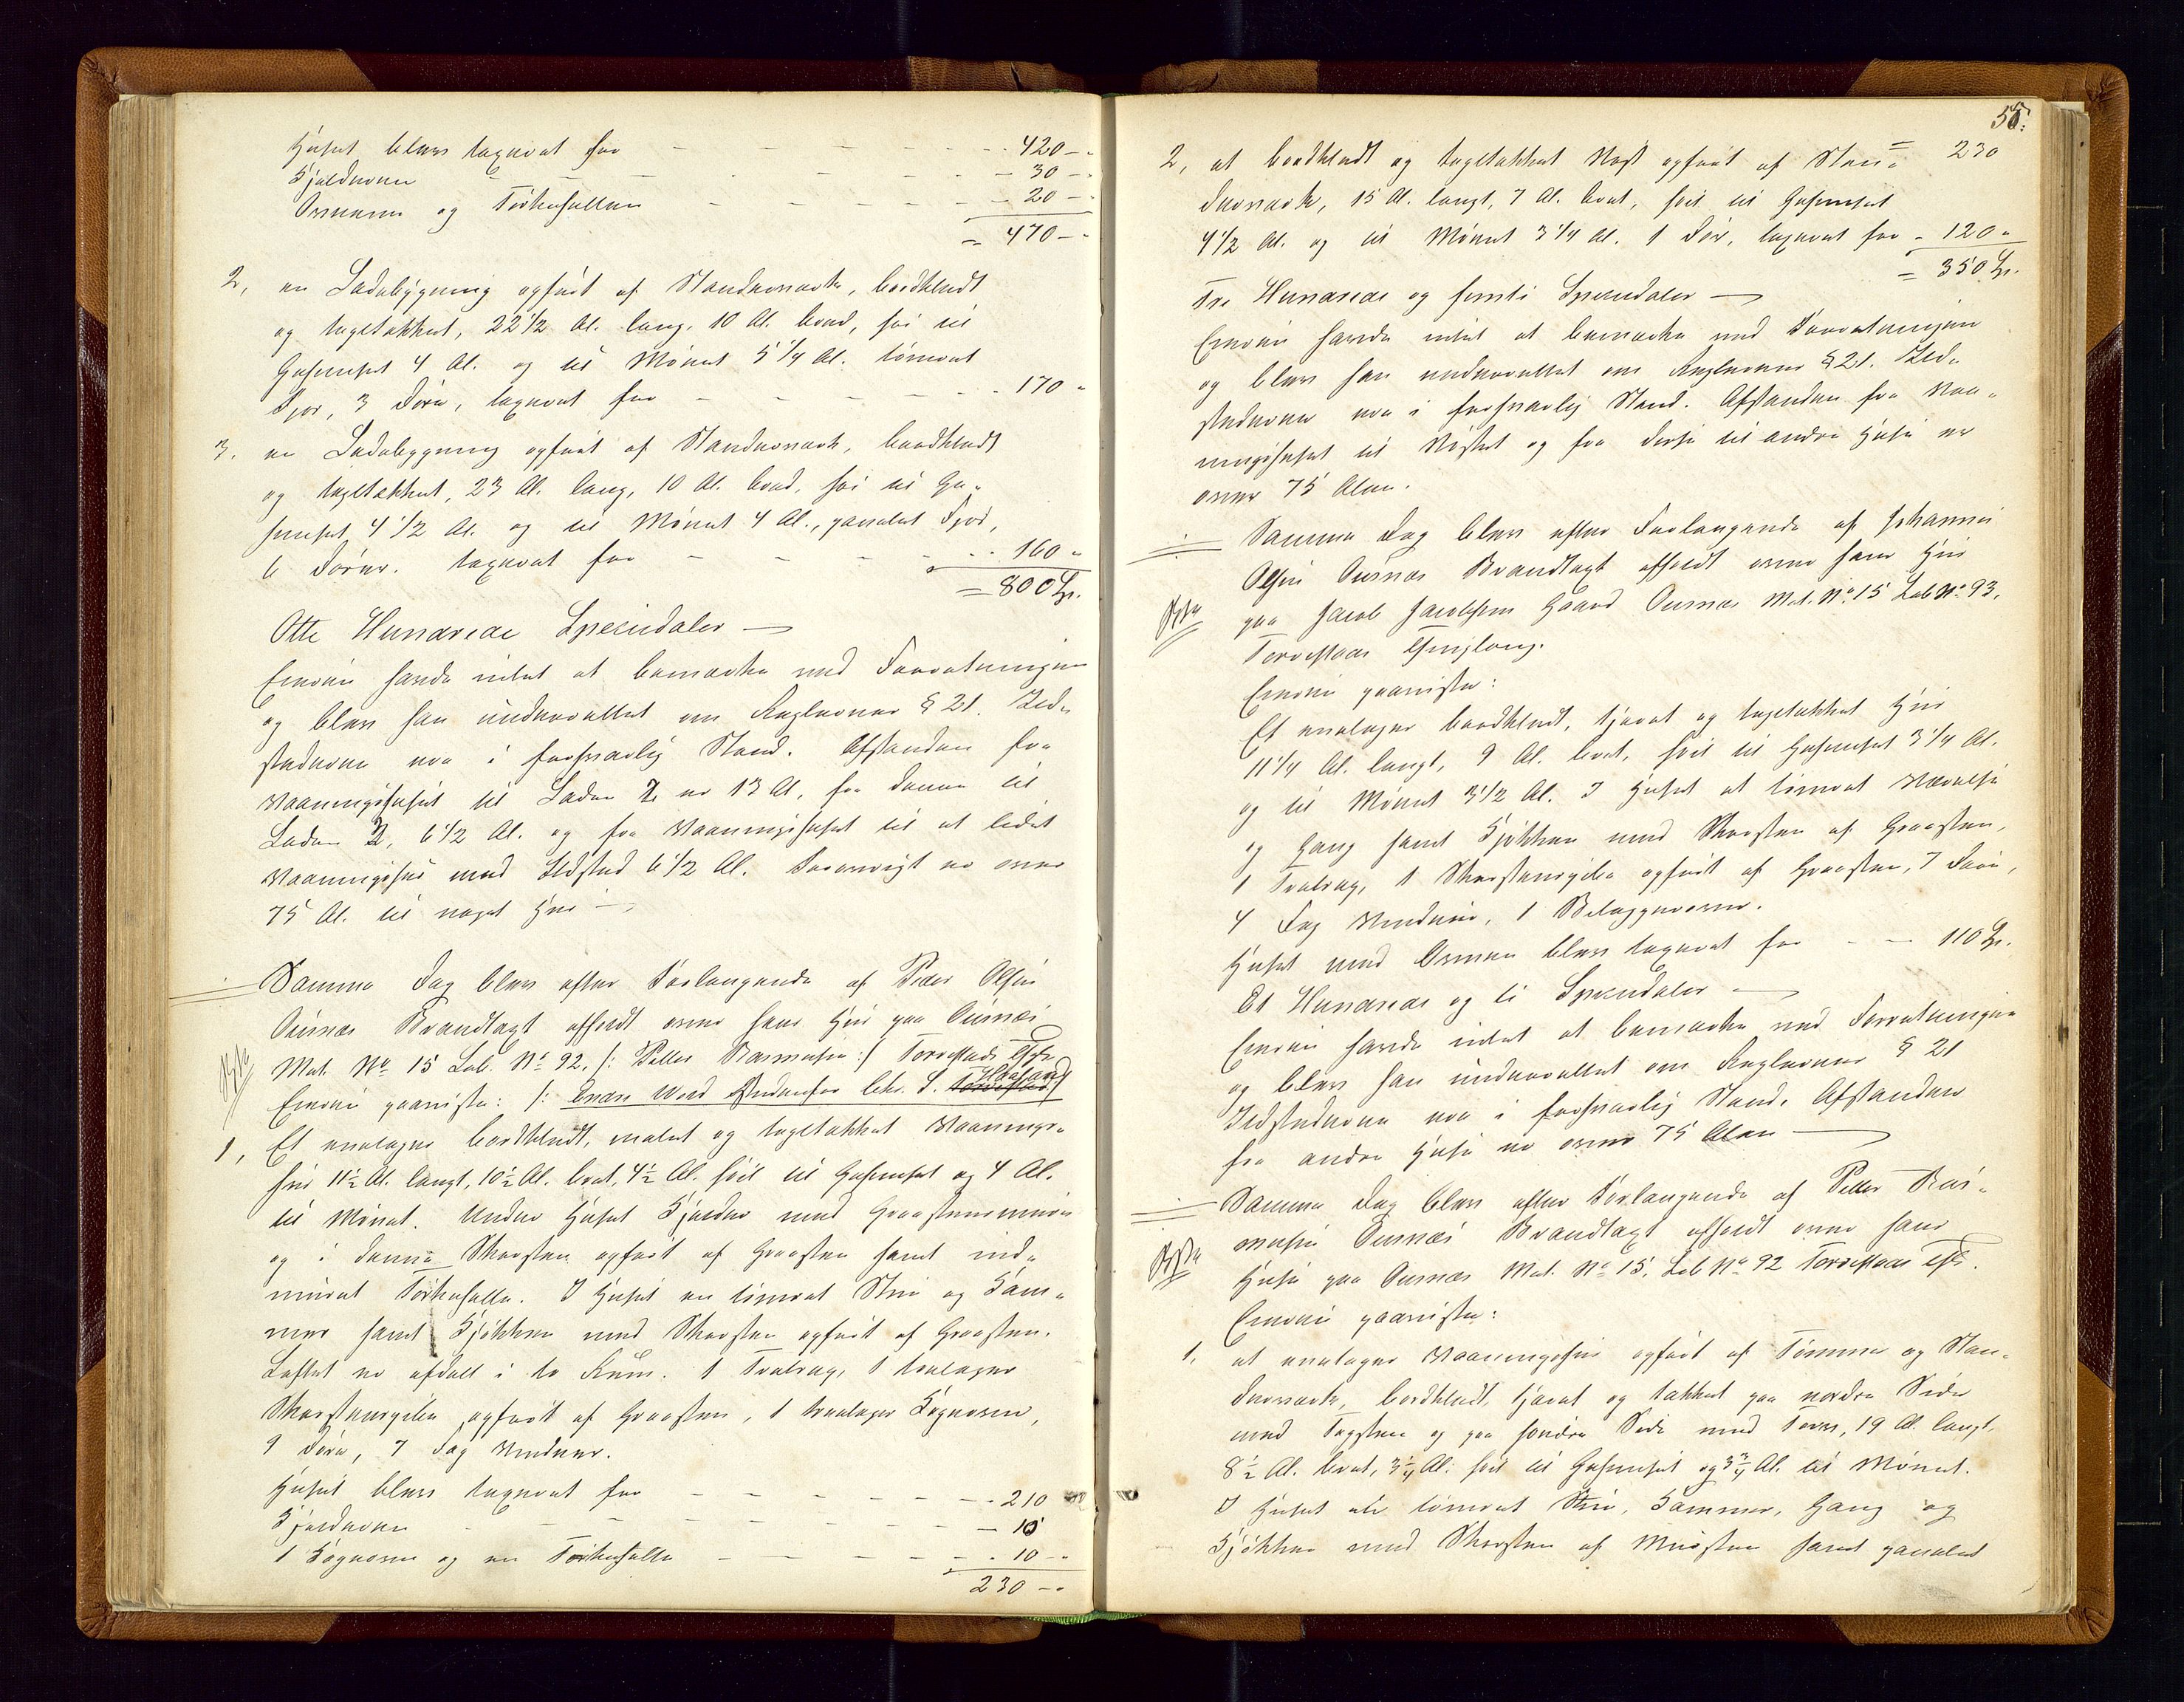 Huset blev taxeret for - - - 420 -
Kjelderen - - - 30 -
Ovnene og Tørkehellen - - - 20 -
= 470 -
2, en Ladebygning opført af Standerværk, bordklædt
og tagltækket, 22 1/2 Al. lang, 10 Al. bred, høi til
Gesimset 4 Al. og til Mønet 5 1/4 Al. tømret
Fjøs, 3 Døre, taxeret for - - - 170 "
3. en Ladebygning opført af Standerværk, bordklædt
og tagltækket, 23 Al. lang, 10 Al. bred, høi til Ge-
simset 4 1/2 Al. og til Mønet 4 Al., panelet Fjøs,
6 Dører. taxeret for - - - 160 "
= 800 Sp.
Otte Hundrede Speciedaler —
Eieren havde intet at bemærke ved Forretningen
og blev han underrettet om Reglernes § 21. Ild-
stederne var i forsvarlig Stand. Afstanden fra
Vaaningshuset til Laden 2 er 13 Al., fra denne til
Laden 3, 6 1/2 Al. og fra Vaaningshuset til et lidet
Vaaningshus med Ildsted 6 1/2 Al. Forøvrigt er over
75 Al. til noget Hus —
Samme Dag blev efter Forlangende af Peder Olsen
Ousnæs Brandtaxt afholdt over hans Hus paa Ousnæs
Mat. No 15 Løb. No 92. /: Peller Rasmussen :/ Torvestads
Eieren paaviste:
1, Et enetages bordklædt, malet og tagltækket Vaanings-
hus 11 1/2 Al. langt, 10 1/2 Al. bred, 4 1/2 Al. høit til Gesimset og 4 Al.
til Mønet. Under Huset Kjelder med Graastensmure
og i denne Skorsten opført af Graasten samt ind-
muret Tørkehelle. I Huset en tømret Stue og Kam-
mer samt Kjøkken med Skorsten opført af Graasten.
Loftet er afdelt i to Rum. 1 Trætrap, 1 toetages
Skorstenspibe opført af Graasten, 1 treetages Kogeovn,
9 Døre, 7 Fag Vinduer.
Huset blev taxeret for - - - 210
Kjelderen - - - 10
1 Kogeovn og en Tørkehelle - - - 10 -
230 -
55.
2, et bordklædt og tagltækket Nøst opført af Stan- = 230
derværk, 15 Al. langt, 7 Al. bred, høit til Gesimset
4 1/2 Al. og til Mønet 3 1/4 Al. 1 Dør, taxeret for - 120 "
= 350 Sp.
Tre Hundrede og femti Speciedaler —
Eieren havde intet at bemærke ved Forretningen
og blev han underrettet om Reglernes § 21. Ild-
stederne var i forsvarlig Stand. Afstanden fra Vaa-
ningshuset til Nøstet og fra disse til andre Huse er
over 75 Alen.
Samme Dag blev efter Forlangende af Johannes
Olsen Ousnæs Brandtaxt afholdt over hans Hus
paa Jacob Jacobsens Gaard Ousnæs Mat. No 15 Løb No 93.
Torvestads Thinglaug.
Eieren paaviste:
Et enetages bordklædt, tjæret og tagltækket Hus
11 1/4 Al. langt, 9 Al. bred, høit til Gesimset 3 1/4 Al.
og til Mønet 3 1/2 Al. I Huset et tømret Værelse
og Gang samt Kjøkken med Skorsten af Graasten,
1 Trætrap, 1 Skorstenspibe opført af Graasten, 7 Døre,
4 Fag Vinduer, 1 Bilæggerovn.
Huset med Ovnen blev taxeret for - - 110 Sp.
Et Hundrede og ti Speciedaler —
Eieren havde intet at bemærke ved Forretningen
og blev han underrettet om Reglernes § 21
Ildstederne var i forsvarlig Stand. Afstanden
fra andre Huse er over 75 Alen —
Samme Dag blev efter Forlangende af Peller Ras-
mussen Ousnæs Brandtaxt afholdt over hans
Huse paa Ousnæs Mat. No 15. Løb No 92 Torvestads
Eieren paaviste:
1, et enetages Vaaningshus opført af Tømmer og Stan-
derværk, bordklædt, tjæret og tækket paa nordre Side
med Tagsten og paa søndre Side med Torv, 19 Al. langt,
8 1/2 Al. bred, 3 1/4 Al. høit til Gesimset og 3 3/4 Al. til Mønet.
I Huset er tømret Stue, Kammer, Gang og
Kjøkken med Skorsten af Mursten samt panelet